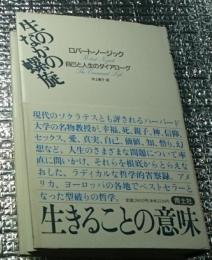 生のなかの螺旋
ロバート・ノージック
Robert Nozick
自己と人生のダイアローグ
The Examined Life
井上章子 訳
現代のソクラテスとも評されるハーバード
大学の名物教授が、幸福、死、親子、神、信仰、
セックス、愛、真実、自己、価値、知、悟り、幻
想など、人生のさまざまな問題について率
直に問いかけ、それらを根底からとらえな
おした、ラディカルな哲学的省察録。ア
メリカ、ヨーロッパの各地でベストセラーと
なった型破りの哲学。
青土社
生きることの意味